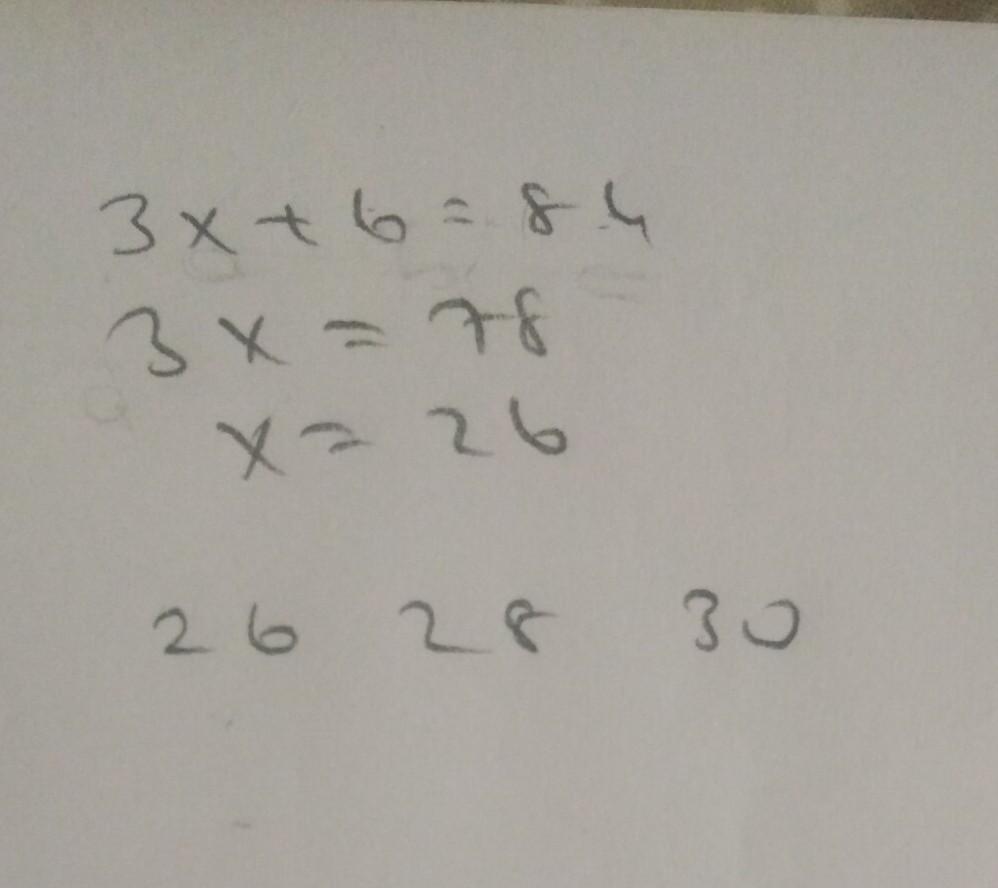 3x+6=84
3x=78
x=26
26 28 30